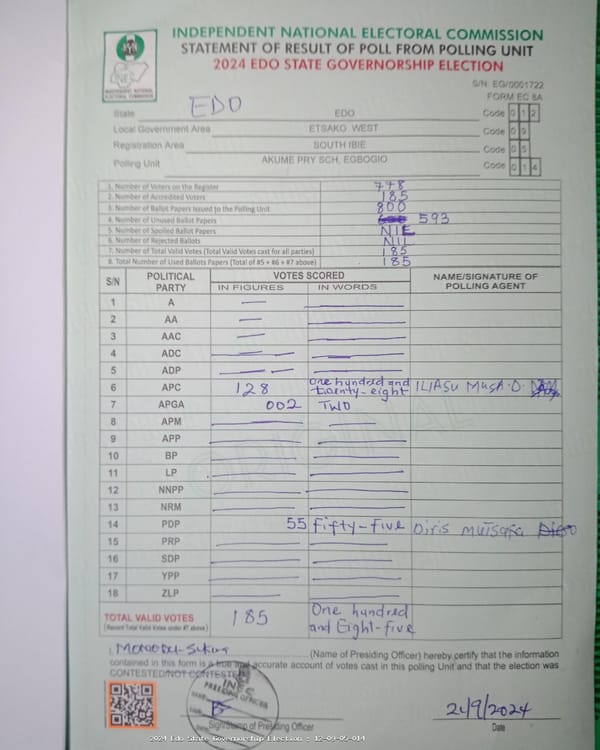 INDEPENDENT NATIONAL ELECTORAL COMMISSION
STATEMENT OF RESULT OF POLL FROM POLLING UNIT
2024 EDO STATE GOVERNORSHIP ELECTION
S/N: EG/0001722
FORM EC 8A
INEC
INDEPENDENT NATIONAL ELECTORAL COMMISSION
EDO
State EDO Code 0 1 2
Local Government Area ETSAKO WEST Code 0 9
Registration Area SOUTH IBIE Code 0 5
Polling Unit AKUME PRY SCH, EGBOGIO Code 0 1 4
1. Number of Voters on the Register 778
2. Number of Accredited Voters 185
3. Number of Ballot Papers Issued to the Polling Unit 800
4. Number of Unused Ballot Papers 593
5. Number of Spoiled Ballot Papers NIL
6. Number of Rejected Ballots NIL
7. Number of Total Valid Votes (Total Valid Votes cast for all parties) 185
8. Total Number of Used Ballots Papers (Total of #5 + #6 + #7 above) 185
S/N POLITICAL PARTY VOTES SCORED NAME/SIGNATURE OF POLLING AGENT
IN FIGURES IN WORDS
1 A
2 AA
3 AAC
4 ADC
5 ADP
6 APC 128 One hundred and twenty-eight ILIASU MUSA.O.
7 APGA 002 TWO
8 APM
9 APP
10 BP
11 LP
12 NNPP
13 NRM
14 PDP 55 Fifty-Five
15 PRP
16 SDP
17 YPP
18 ZLP
TOTAL VALID VOTES 185 One hundred and Eight-five
(Record Total Valid Votes under #7 above)
I, (Name of Presiding Officer) hereby certify that the information
contained in this form is a true and accurate account of votes cast in this polling Unit and that the election was
CONTESTED/NOT CONTESTED
INEC
PRESIDING OFFICER
Sign/Stamp of Presiding Officer
21/9/2024
Date
2024 Edo State Governorship Election : 12-09-05-014